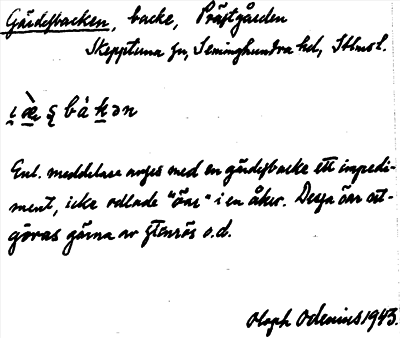 Gärdesbacken, backe, Prästgården
Skepptuna sn, Seminghundra hd, Sthms l.
Enl. meddelare avses med en gärdesbacke ett impedi-
ment, icke odlade "öar" i en åker. Dessa öar ut-
göras gärna av stenrös o.d.
Oloph Odenius 1943.